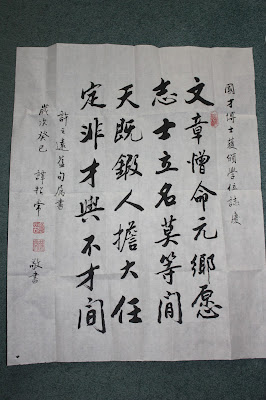 國才博士獲頒學位誌慶
文章憎命元鄉愿
志士立名莫等間
天既鍛人擔大任
定非才與不才間
許之遠舊句屬書
歲次癸巳 譚 敬書